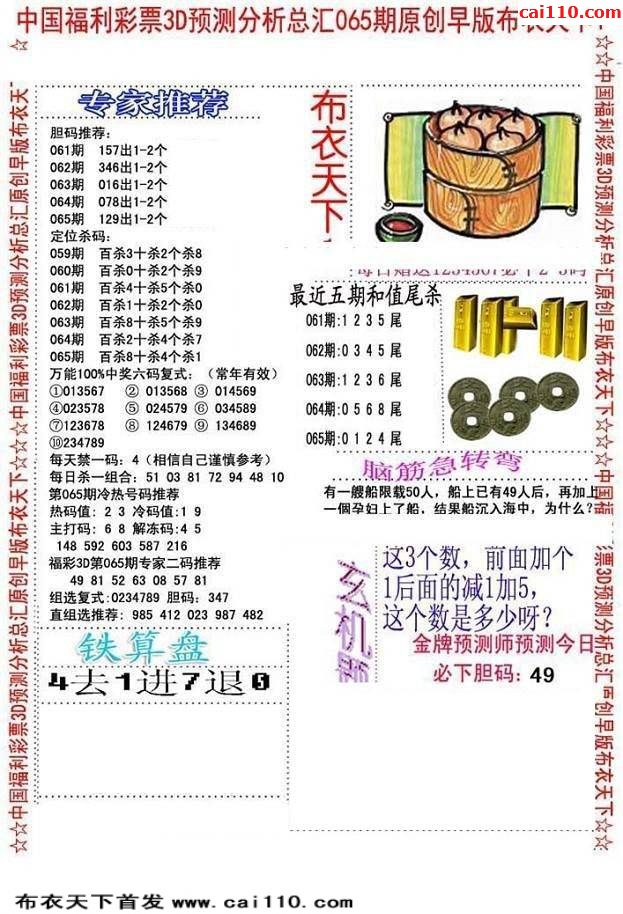 cai110.com
中国福利彩票3D预测分析总汇065期原创早版布衣天下
专家推荐
胆码推荐：
061期 157出1-2个
062期 346出1-2个
063期 016出1-2个
064期 078出1-2个
065期 129出1-2个
定位杀码：
059期 百杀3十杀2个杀8
060期 百杀0十杀2个杀9
061期 百杀4十杀5个杀0
062期 百杀1十杀2个杀0
063期 百杀8十杀5个杀9
064期 百杀2十杀4个杀7
065期 百杀8十杀4个杀1
万能100%中奖六码复式：（常年有效）
①013567 ② 013568 ③ 014569
④023578 ⑤ 024579 ⑥ 034589
⑦123678 ⑧ 124679 ⑨ 134689
⑩234789
每天禁一码：4（相信自己谨慎参考）
每日杀一组合：51 03 81 72 94 48 10
第065期冷热号码推荐
热码值：2 3 冷码值：1 9
主打码：6 8 解冻码：4 5
148 592 603 587 216
福彩3D第065期专家二码推荐
49 81 52 63 08 57 81
组选复式：0234789 胆码：347
直组选推荐：985 412 023 987 482
铁算盘
4去1进7退0
布衣天下
每日赠送1234567必中2-3码
最近五期和值尾杀
061期：1 2 3 5 尾
062期：0 3 4 5 尾
063期：1 2 3 6 尾
064期：0 5 6 8 尾
065期：0 1 2 4 尾
脑筋急转弯
有一艘船限载50人，船上已有49人后，再加上
一個孕妇上了船，结果船沉入海中，为什么？
玄机
这3个数，前面加个
1后面的减1加5，
这个数是多少呀？
金牌预测师预测今日
必下胆码：49
☆☆中国福利彩票3D预测分析总汇原创早版布衣天下☆☆☆中国福利彩票3D预测分析总汇原创早版布衣天
☆☆中国福利彩票3D预测分析总汇原创早版布衣天下☆☆中国福
彩票3D预测分析总汇原创早版布衣天下☆☆
布衣天下首发 www.cai110.com